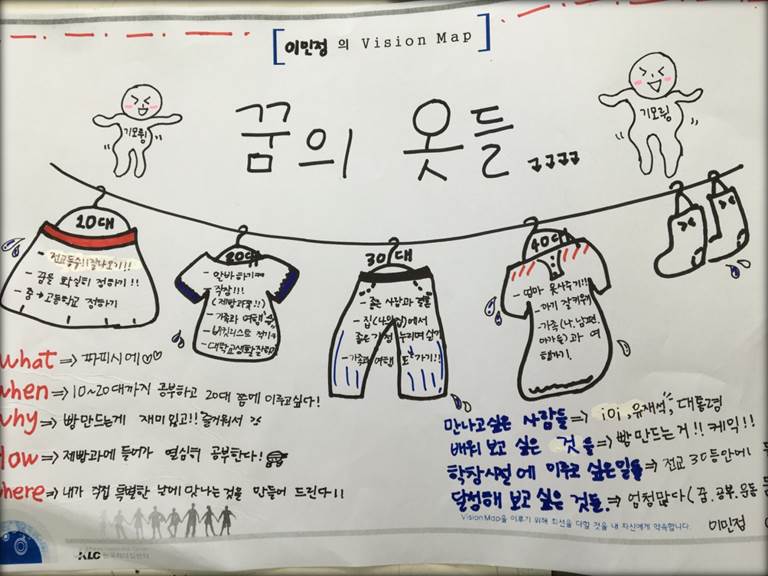 [이민정 의 Vision Map]
꿈의 옷들
기모찡
기모찡
10대
- 전교등수!! 잘나오기!!
- 꿈을 확실히 정하기!!
- 중→고등학교 정하기
20대
- 알바하기
- 직장!!
(제빵과쪽!!)
- 가족과 여행
- 버킷리스트 적기
- 대학교생활 잘하기
30대
- 좋은 사람과 결혼
- 집(나의집)에서
좋은가정 누리며 살기
- 가족과 여행 또 가기!!
40대
- 엄마 옷사주기!!
- 아기 잘키우기
- 가족(나,남편,
아가들)과 여
행가기.
what ⇒ 파피시에♡♡
when ⇒ 10~20대까지 공부하고 20대 쯤에 이루고싶다!
why ⇒ 빵만드는게 재미있고!! 즐거워서
How ⇒ 제빵과에 들어가 열심히 공부한다!
where ⇒ 내가 직접 특별한 날에 맛나는것을 만들어 드린다!!
만나고싶은 사람들 ⇒ ioi, 유재석, 대통령
배워 보고 싶은 것들 ⇒ 빵 만드는 거!! 케익!!
학창시절에 이루고 싶은일들 ⇒ 전교 30등안에
달성해 보고싶은 것들. ⇒ 엄청많다 (꿈.공부.운동
Vision Map을 이루기 위해 최선을 다할 것을 내 자신에게 약속합니다.
이민정
KLC 한국리더십센터